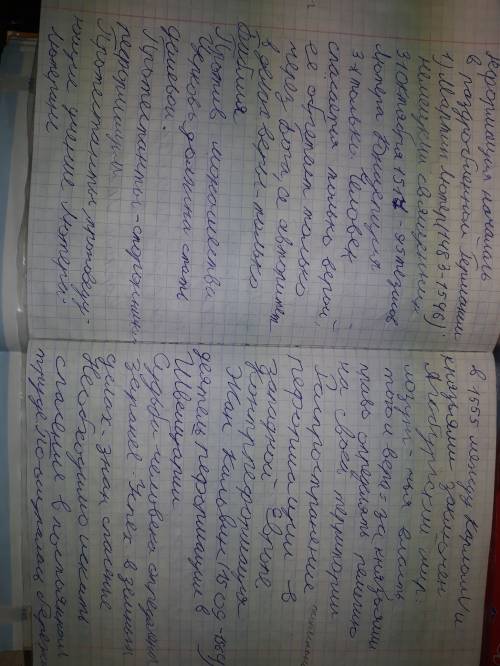 Реформация началась
в раздробленной Германии
1) Мартин Лютер (1483-1546)
немецкий священник
31 октября 1517 - 95 тезисов
Лютера Концепция
3х только Человек
спасается только верой,
её обретает только
через Бога, а авторитет
в делах веры - только
Библия
Против монашества
Церковь должна стать
дешёвой.
Протестанты - сторонники
реформации
Протестанты, исповедую-
щие учение Лютера -
лютеране
в 1555 между Карлом V и
князьями заключен
Аугсбургский мир:
лозунг - чья власть
того и вера = за князьями
право определять религию
на своей территории
Распространение
реформации в
западной Европе.
Контрреформация
Жан Кальвин (1509-1564)
деятель реформации в
Швейцарии
Судьба человека определена
заранее. Успех в земных
делах знак спасения
Необходимо искать
спасения в постоянном
труде